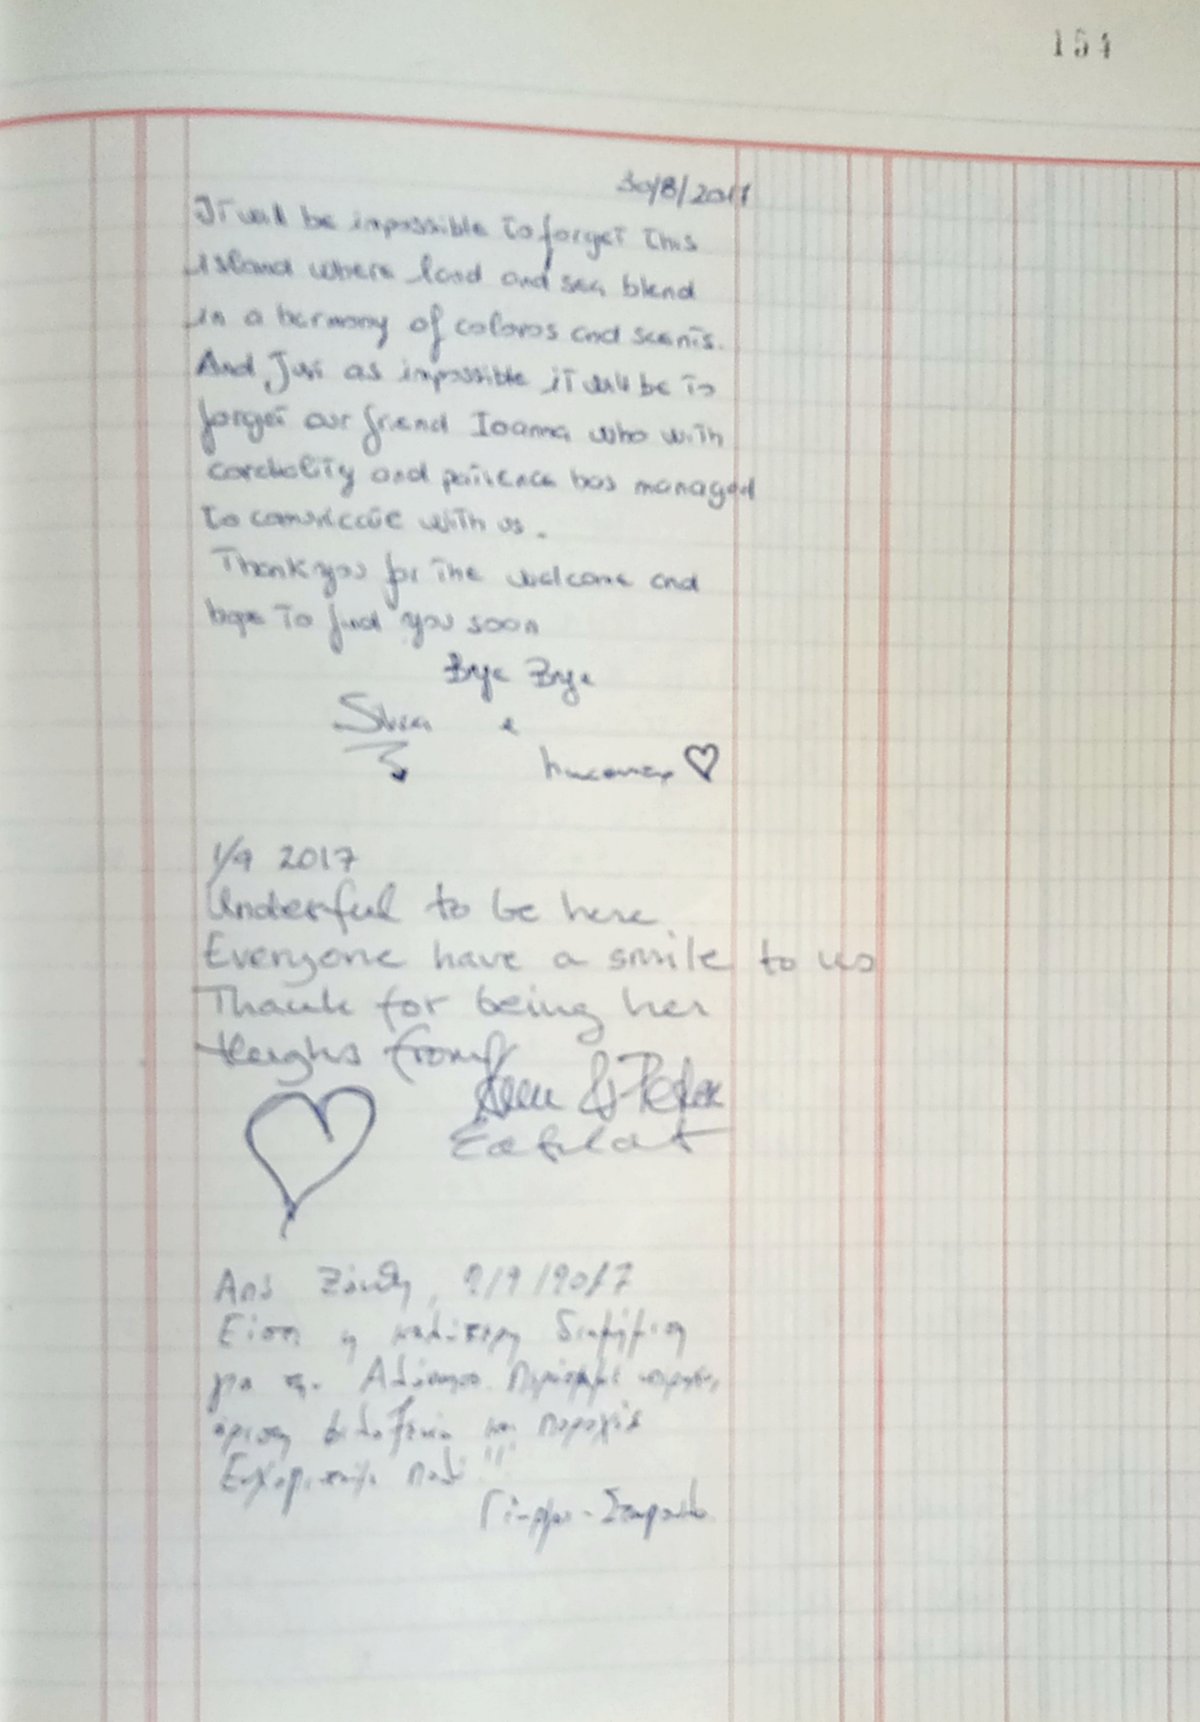 154
30/8/2017
It will be impossible to forget this
island where land and sea blend
in a harmony of colors and scents.
And Just as impossible it will be to
forget our friend Ioanna who with
cordiality and patience has managed
to with us.
Thank you for the welcome and
hope to find you soon
Bye Bye
Silvia e
♡
1/9 2017
Underful to be here
Everyone have a smile to us
Thank for being her
from
&
Από Ξάνθη, 2/9/2017
Είστε η καλύτερη διαφήμιση
για την Αλόννησο.
άριστη φιλοξενία και παροχές
Ευχαριστούμε πολύ!!!
Γιώργος -